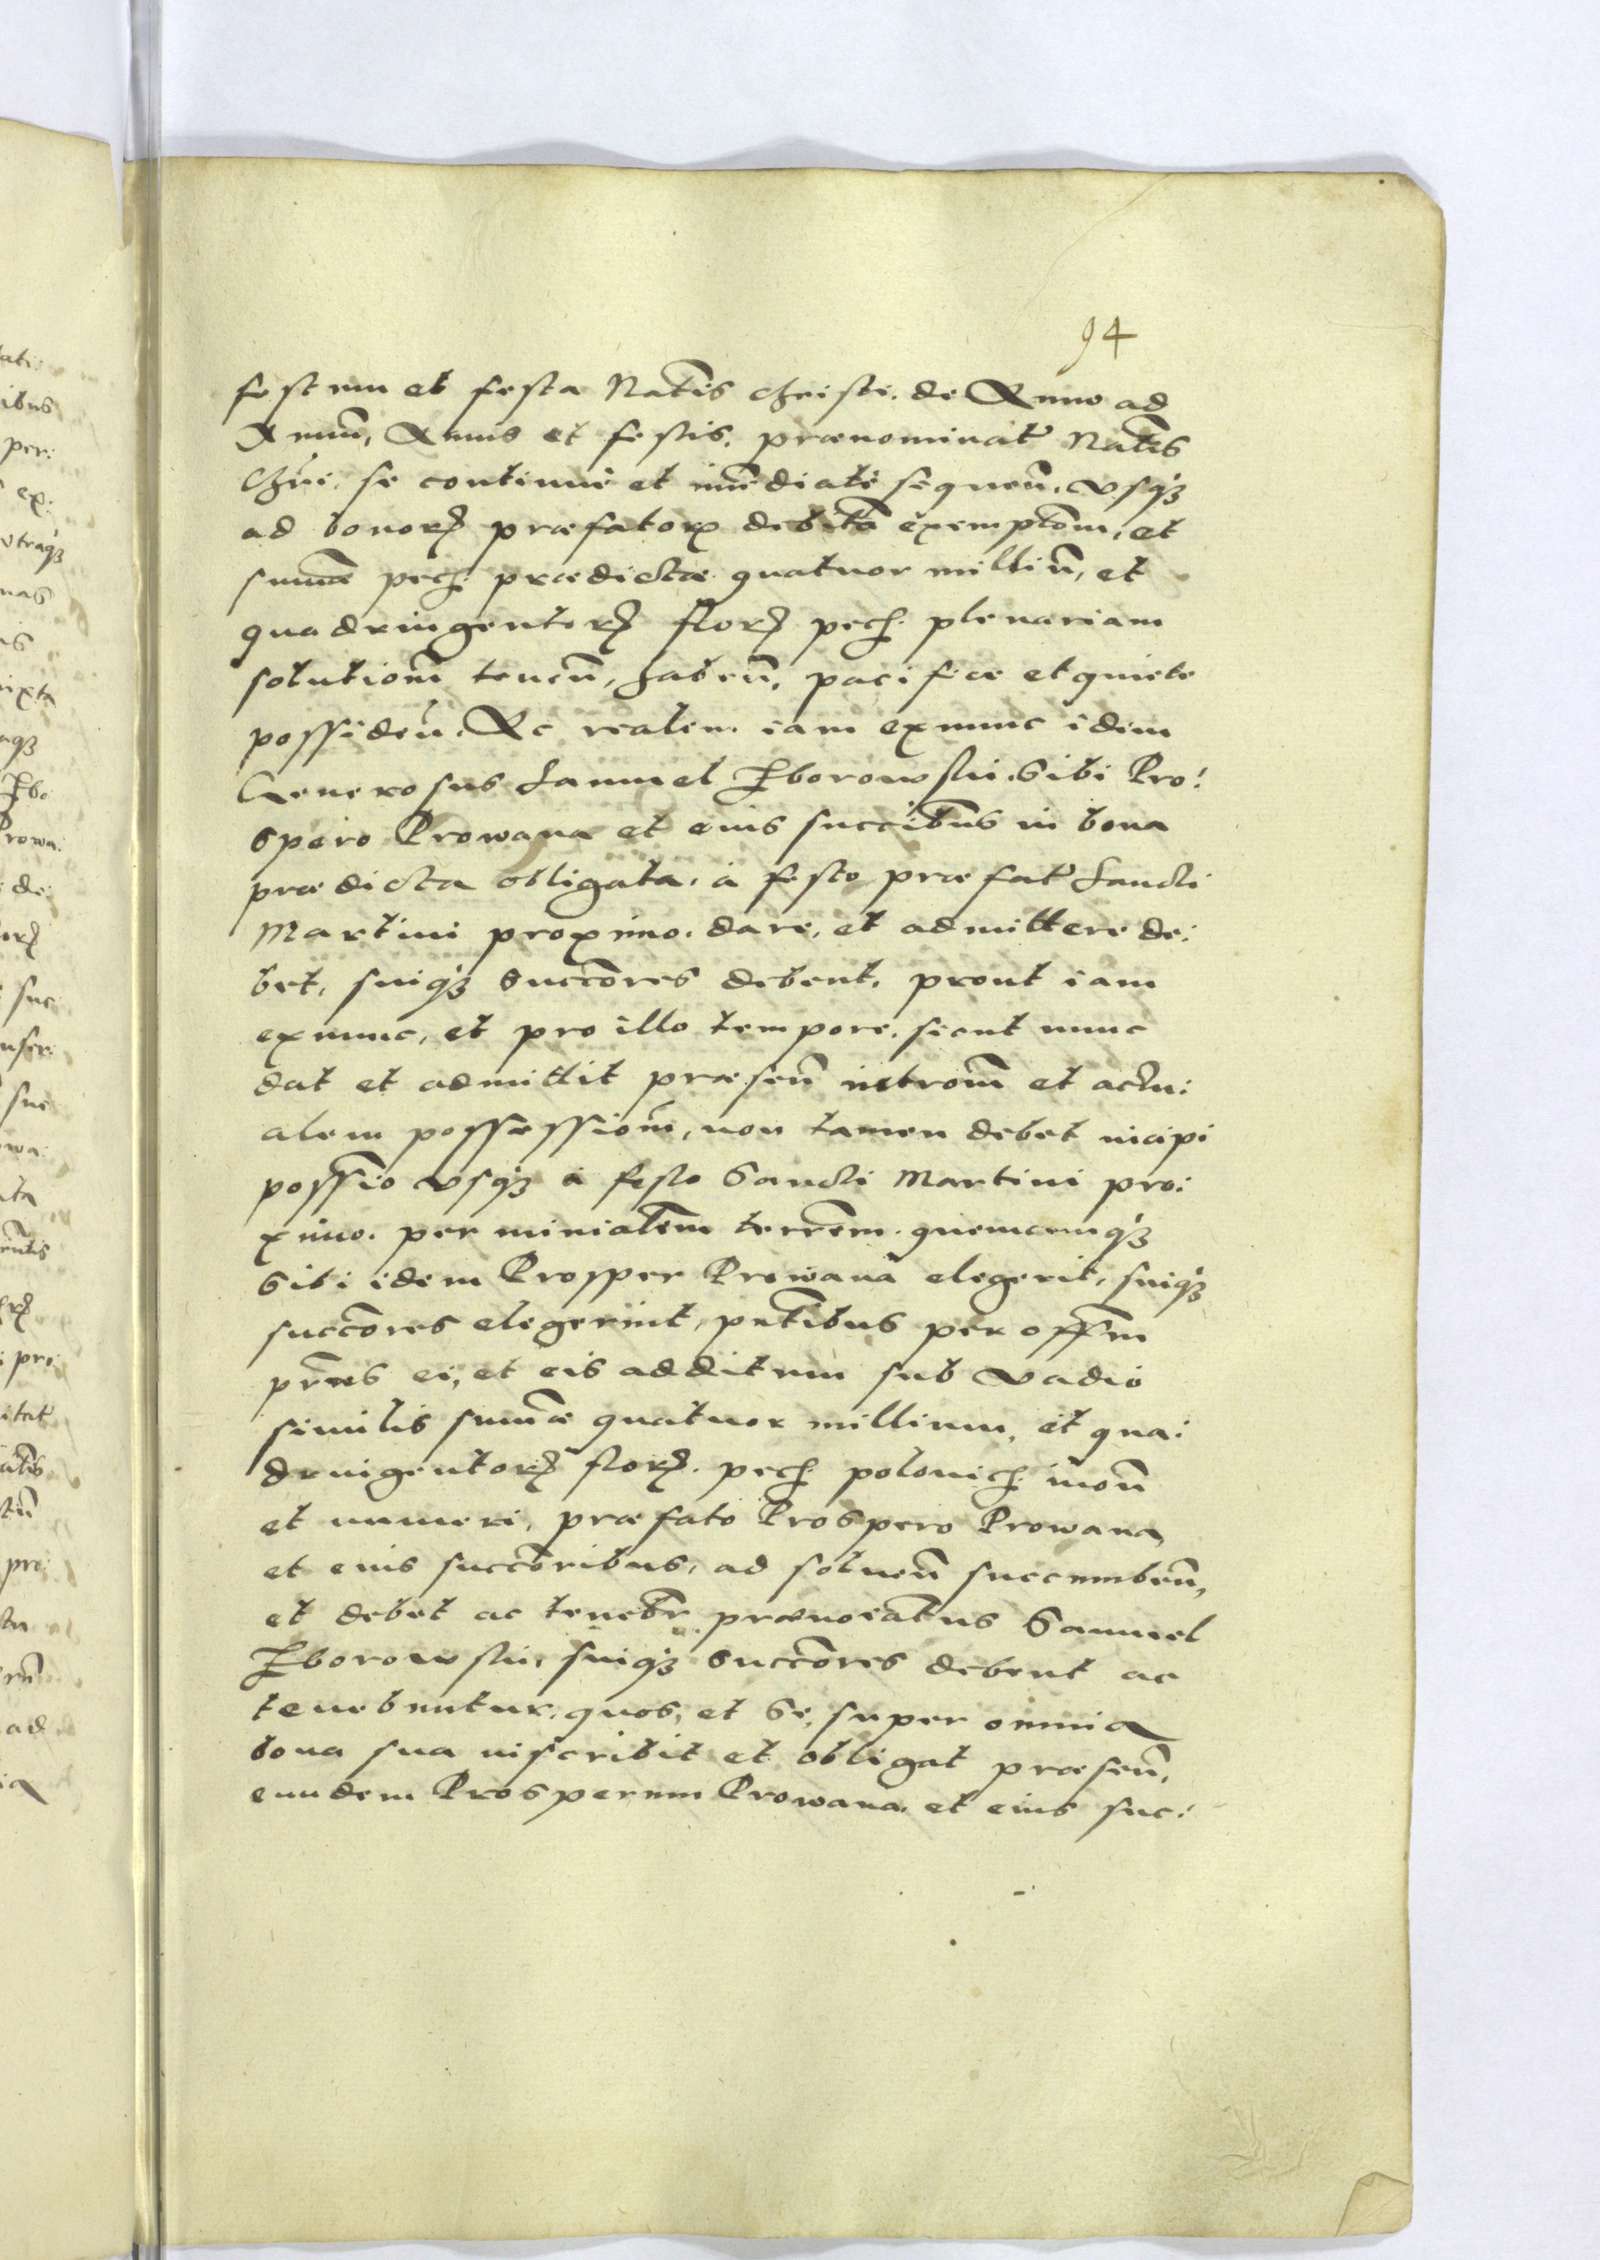 94
festum et festa Natĩs Christi. de Anno ad
Annũ, Annis et festis. prænominat̃ Natĩs
Chri̇. se continuè et im̃ediatè sequeñ. vsq₃
ad bonorꝝ præfatorꝝ debitã exemptõem, et
sum̃æ pecꝭ. prædictæ quatuor milliũ, et
quadringentorꝝ florꝝ pecꝭ. plenariam
solutionẽ teneñ, habeñ, pacificæ et quiete
possideñ. Ac realem iam ex nunc idem
Generosus Samuel Zborowski. sibi Pro:
spero Prowana et eius succĩbus in bona
prædicta obligata. à festo præfat̃ Sancti
Martini proximo. dare, et admittere de:
bet, suiq₃ Succõres debent, prout iam
ex nunc, et pro illo tempore. sicut nunc
dat et admittit præseñ intromĩ et actu:
alem possessionẽ, non tamen debet incipi
possẽio vsq₃ à festo Sancti Martini pro:
ximo. per ministeriałem terrẽm. quemcumq₃
sibi idem Prosper Prowana elegerit, suiq₃
succõres elegerint, pñtibus per offm̃
præs ei, et eis additum sub Vadio
similis sum̃æ quatuor millium, et qua:
dringentorꝝ florꝝ. pecꝭ. polonicꝭ. moñ
et numeri, præfato Prospero Prowana
et eius succõribus, ad solueñ succumbeñ,
et debet ac tenebr̃. prænoiatus Samuel
Zborowski, suiq₃ Succõres debent ac
tenebuntur. quos, et Se, super omnia
bona sua inscribit et obligat præseñ,
eundem Prosperum Prowana. et eius suc: